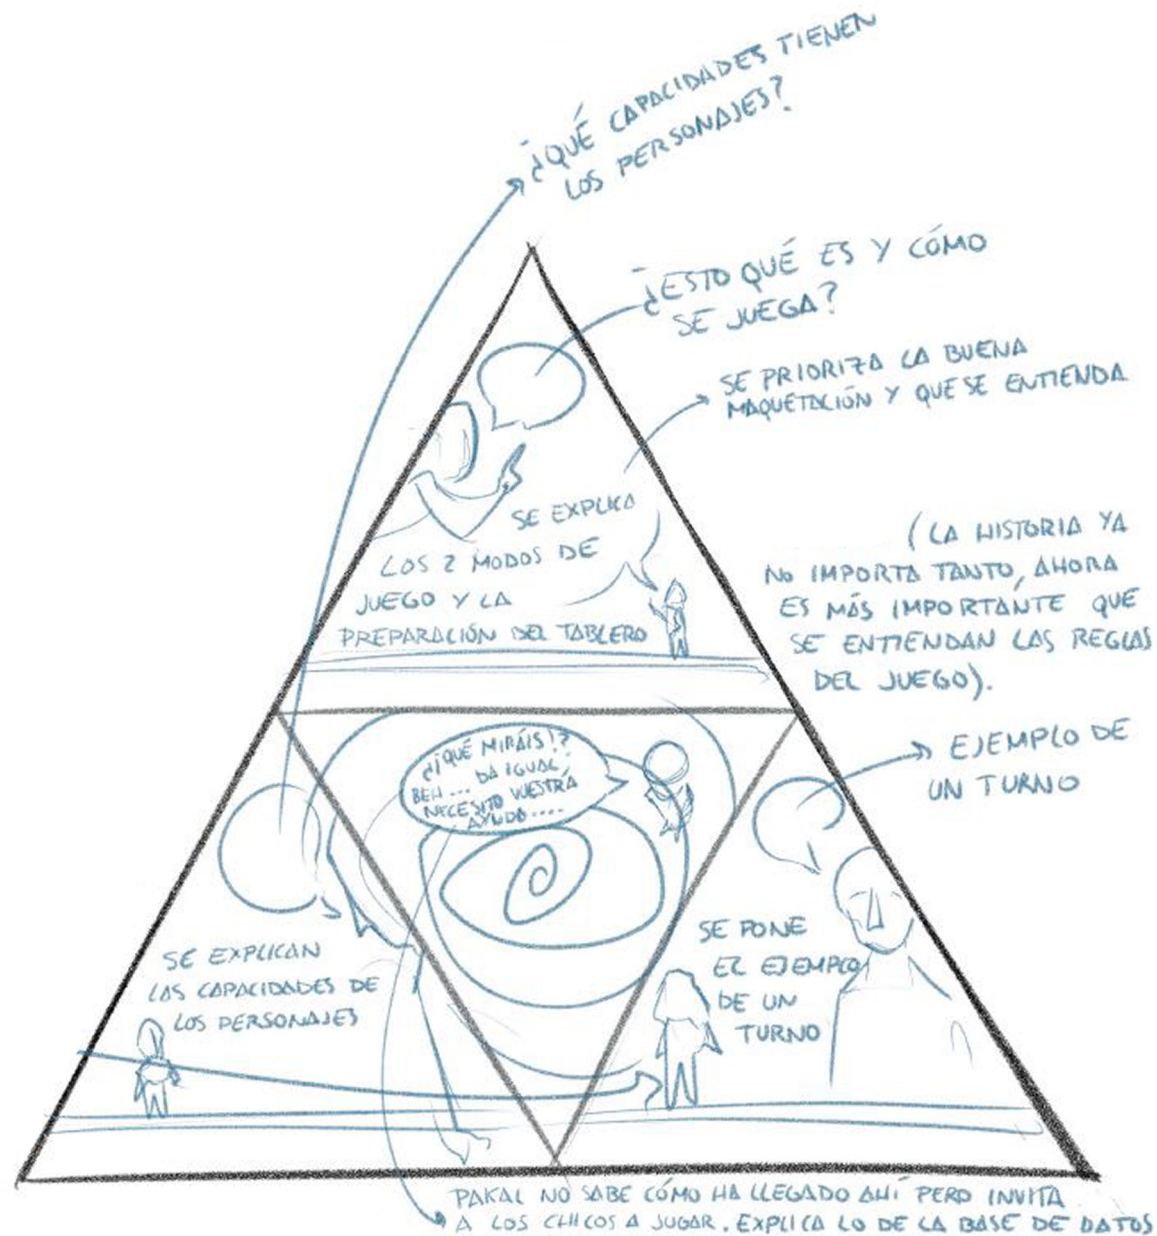 ¿QUÉ CAPACIDADES TIENEN
LOS PERSONAJES?
¿ESTO QUÉ ES Y CÓMO
SE JUEGA?
SE PRIORIZA LA BUENA
MAQUETACIÓN Y QUE SE ENTIENDA
SE EXPLICA
LOS 2 MODOS DE
JUEGO Y LA
PREPARACIÓN DEL TABLERO
(LA HISTORIA YA
NO IMPORTA TANTO, AHORA
ES MÁS IMPORTANTE QUE
SE ENTIENDAN LAS REGLAS
DEL JUEGO).
¿¡QUÉ MIRÁIS!?
BEH... DA IGUAL.
NECESITO VUESTRA
AYUDA....
EJEMPLO DE
UN TURNO
SE EXPLICAN
LAS CAPACIDADES DE
LOS PERSONAJES
SE PONE
EL EJEMPLO
DE UN
TURNO
PAKAL NO SABE CÓMO HA LLEGADO AHÍ PERO INVITA
A LOS CHICOS A JUGAR. EXPLICA LO DE LA BASE DE DATOS